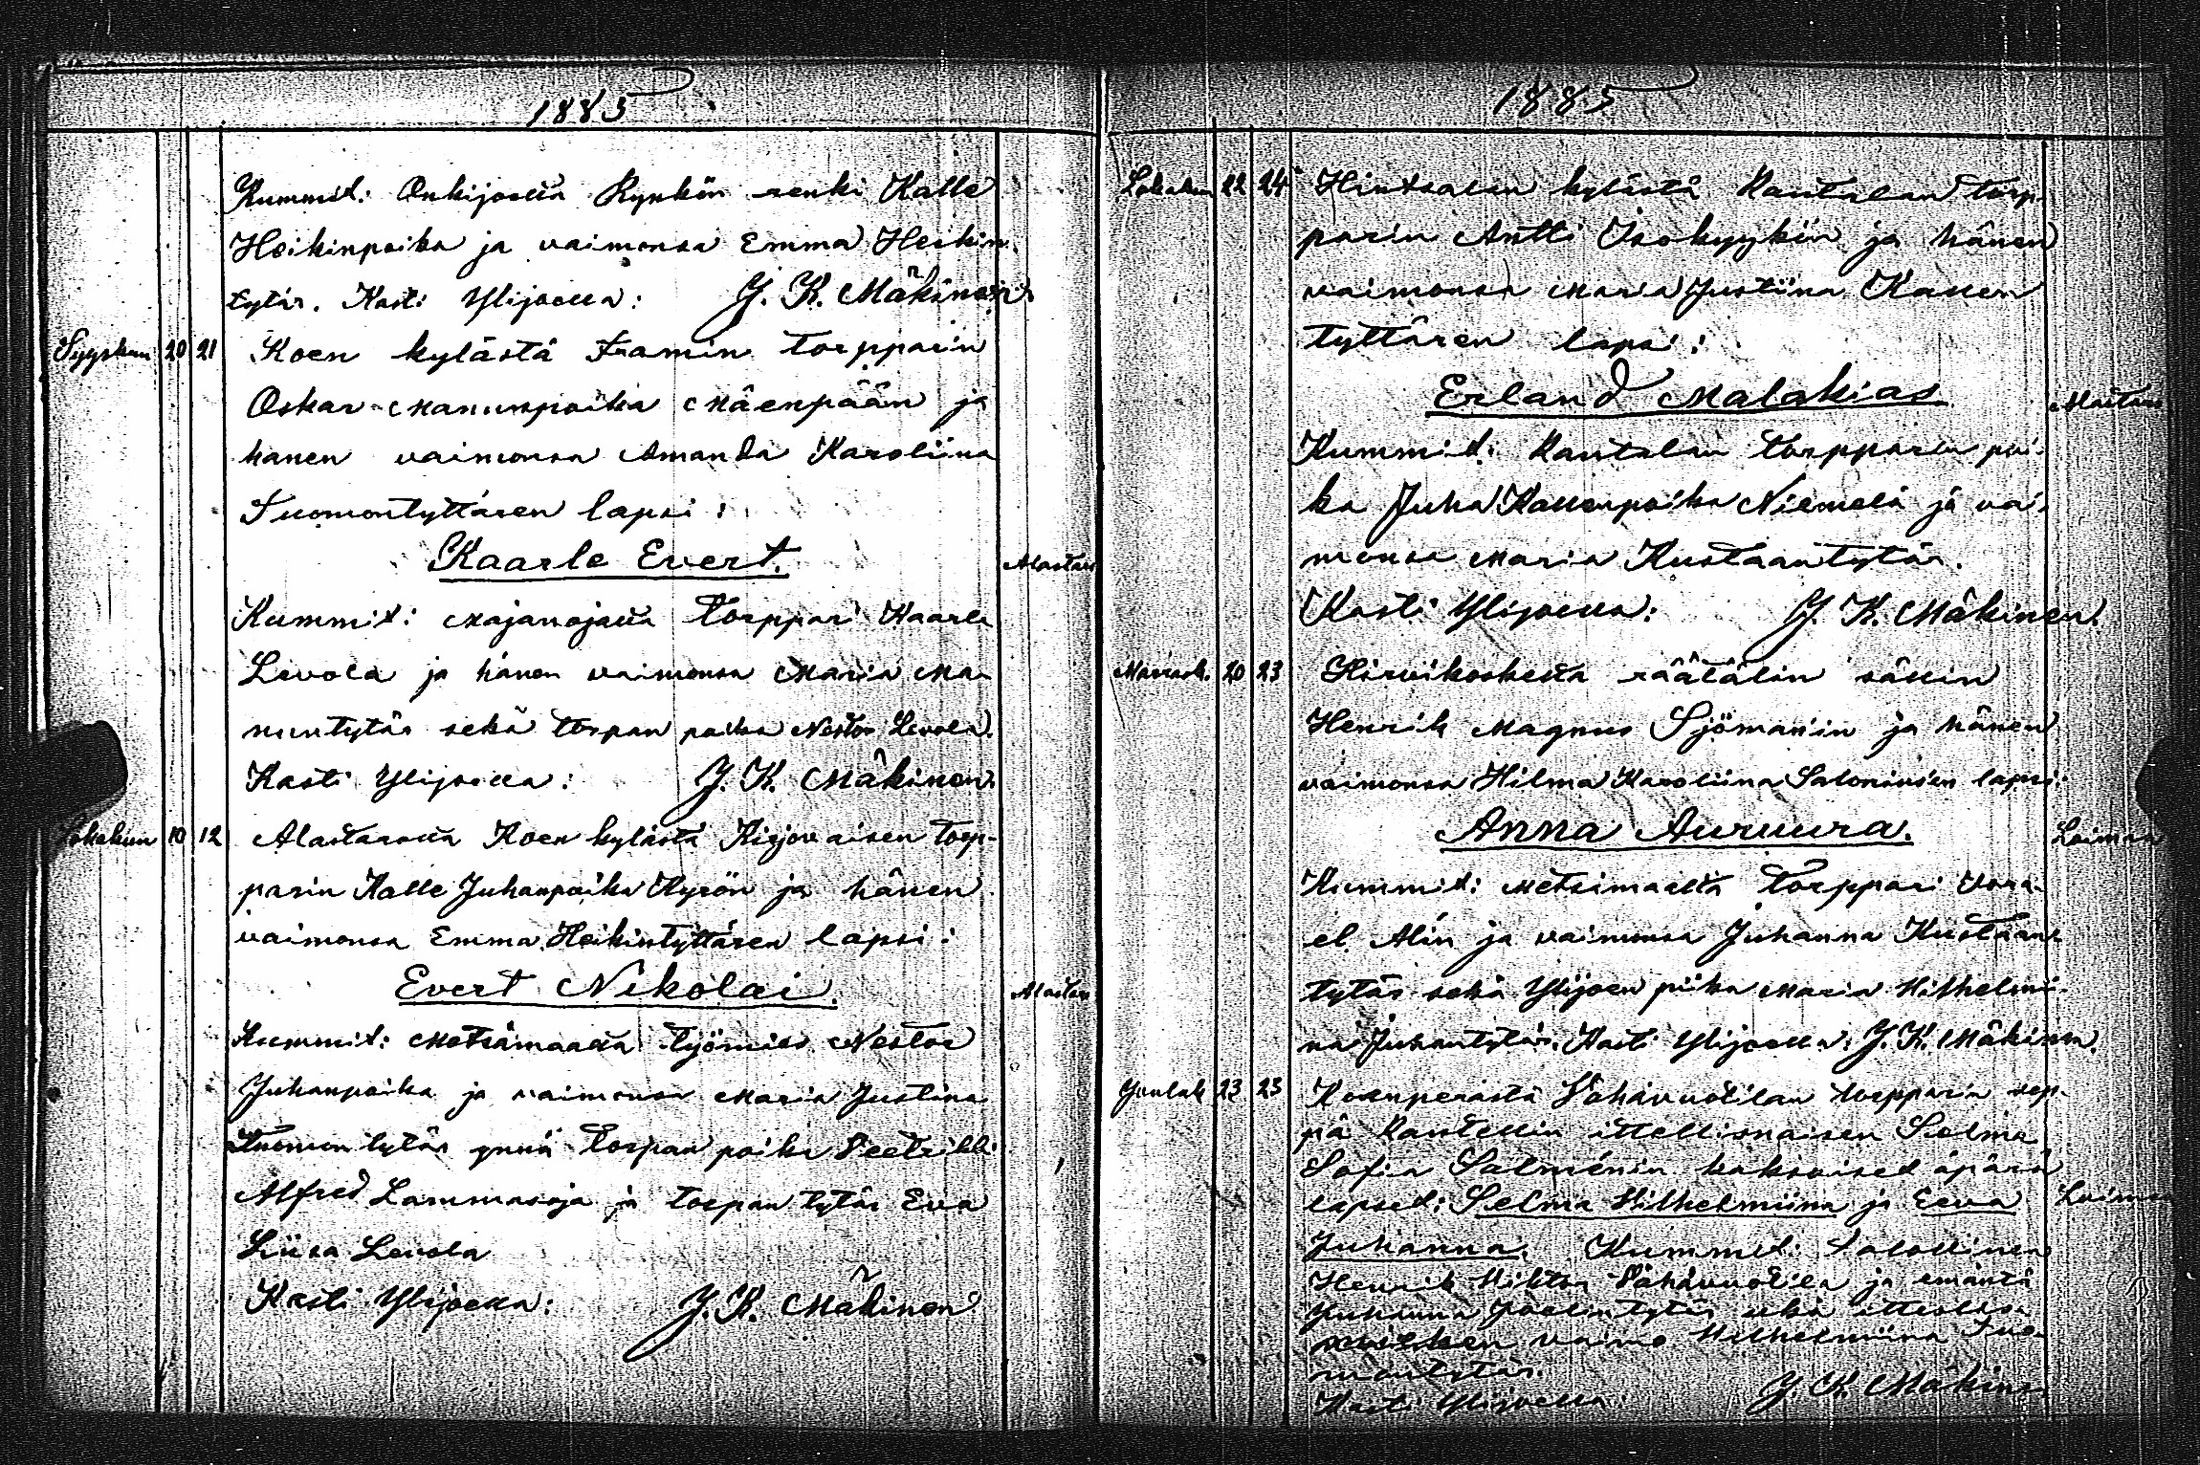 1885
Kummit: Onkijoelta Rynkön renki Kalle
Heikinpoika ja vaimonsa Emma Heikin-
tytär. Kasti Ylijoella: J. K. Mäkinen
Syyskuu 20 21 Koen kylästä Framin torpparin
Oskar Manunpoika Mäenpään ja
hanen vaimonsa Amanda Karoliina
Tuomontyttären lapsi:
Kaarle Evert. Alastaro
Kummit: Majanojalta torppari Kaarle
Levola ja hänen vaimonsa Maria Ma-
nuntytär sekä torpan poika Nestor Levola.
Kasti Ylijoella: J. K. Mäkinen.
Lokakuu 10 12 Alastarosta Koen kylästä Kirjovaisen torp-
parin Kalle Juhanpoika Kyrön ja hänen
vaimonsa Emma Heikintyttären lapsi:
Evert Nikolai. Alastaro
Kummit: Metsämaalta työmies Nestor
Juhanpoika ja vaimonsa Maria Justina
Tuomontytär ynnä torpan poika Feetrikki
Alfred Lammasoja ja torpan tytär Eva
Liisa Levola
Kasti Ylijoella: J. K. Mäkinen
1885
Lokakuu 22 24 Hintsalan kylästä Rantalan torp-
parin Antti Isokyykän ja hänen
vaimonsa Maria Justiina Kallen
tyttären lapsi:
Erland Malakias Alastaro
Kummit: Rantalan torpparin poi-
ka Juha Kallenpoika Niemelä ja vai-
monsa Maria Kustaantytär.
Kasti Ylijoella: J. K. Mäkinen.
Marrask. 20 23 Hirvikoskelta räätälin sällin
Henrik Magnus Sjömanin ja hänen
vaimonsa Hilma Karoliina Saloniuksen lapsi:
Anna Auruura. Loimaa
Kummit: Metsimaalta torppari Isra-
el Alin ja vaimonsa Juhanna Kustaan-
tytär sekä Ylijoen piika Maria Wilhelmi-
na Juhantytär. Kasti Ylijoella. J. K. Mäkinen.
Jouluk 23 25 Koenperästä Vähävuotilan torpparin sep-
pä Rantellin itellisnaisen Selma
Sofia Salménin kaksoiset äpärä
lapset: Selma Wilhelmiina ja Eeva Loimaa
Juhanna. Kummit: talollinen
Henrik Wiktor Vähävuotila ja emäntä
Juhanna tytär sekä
vaimo Wilhelmiina Tuo-
montytär.
Kasti Ylijoella: J. K. Mäkinen